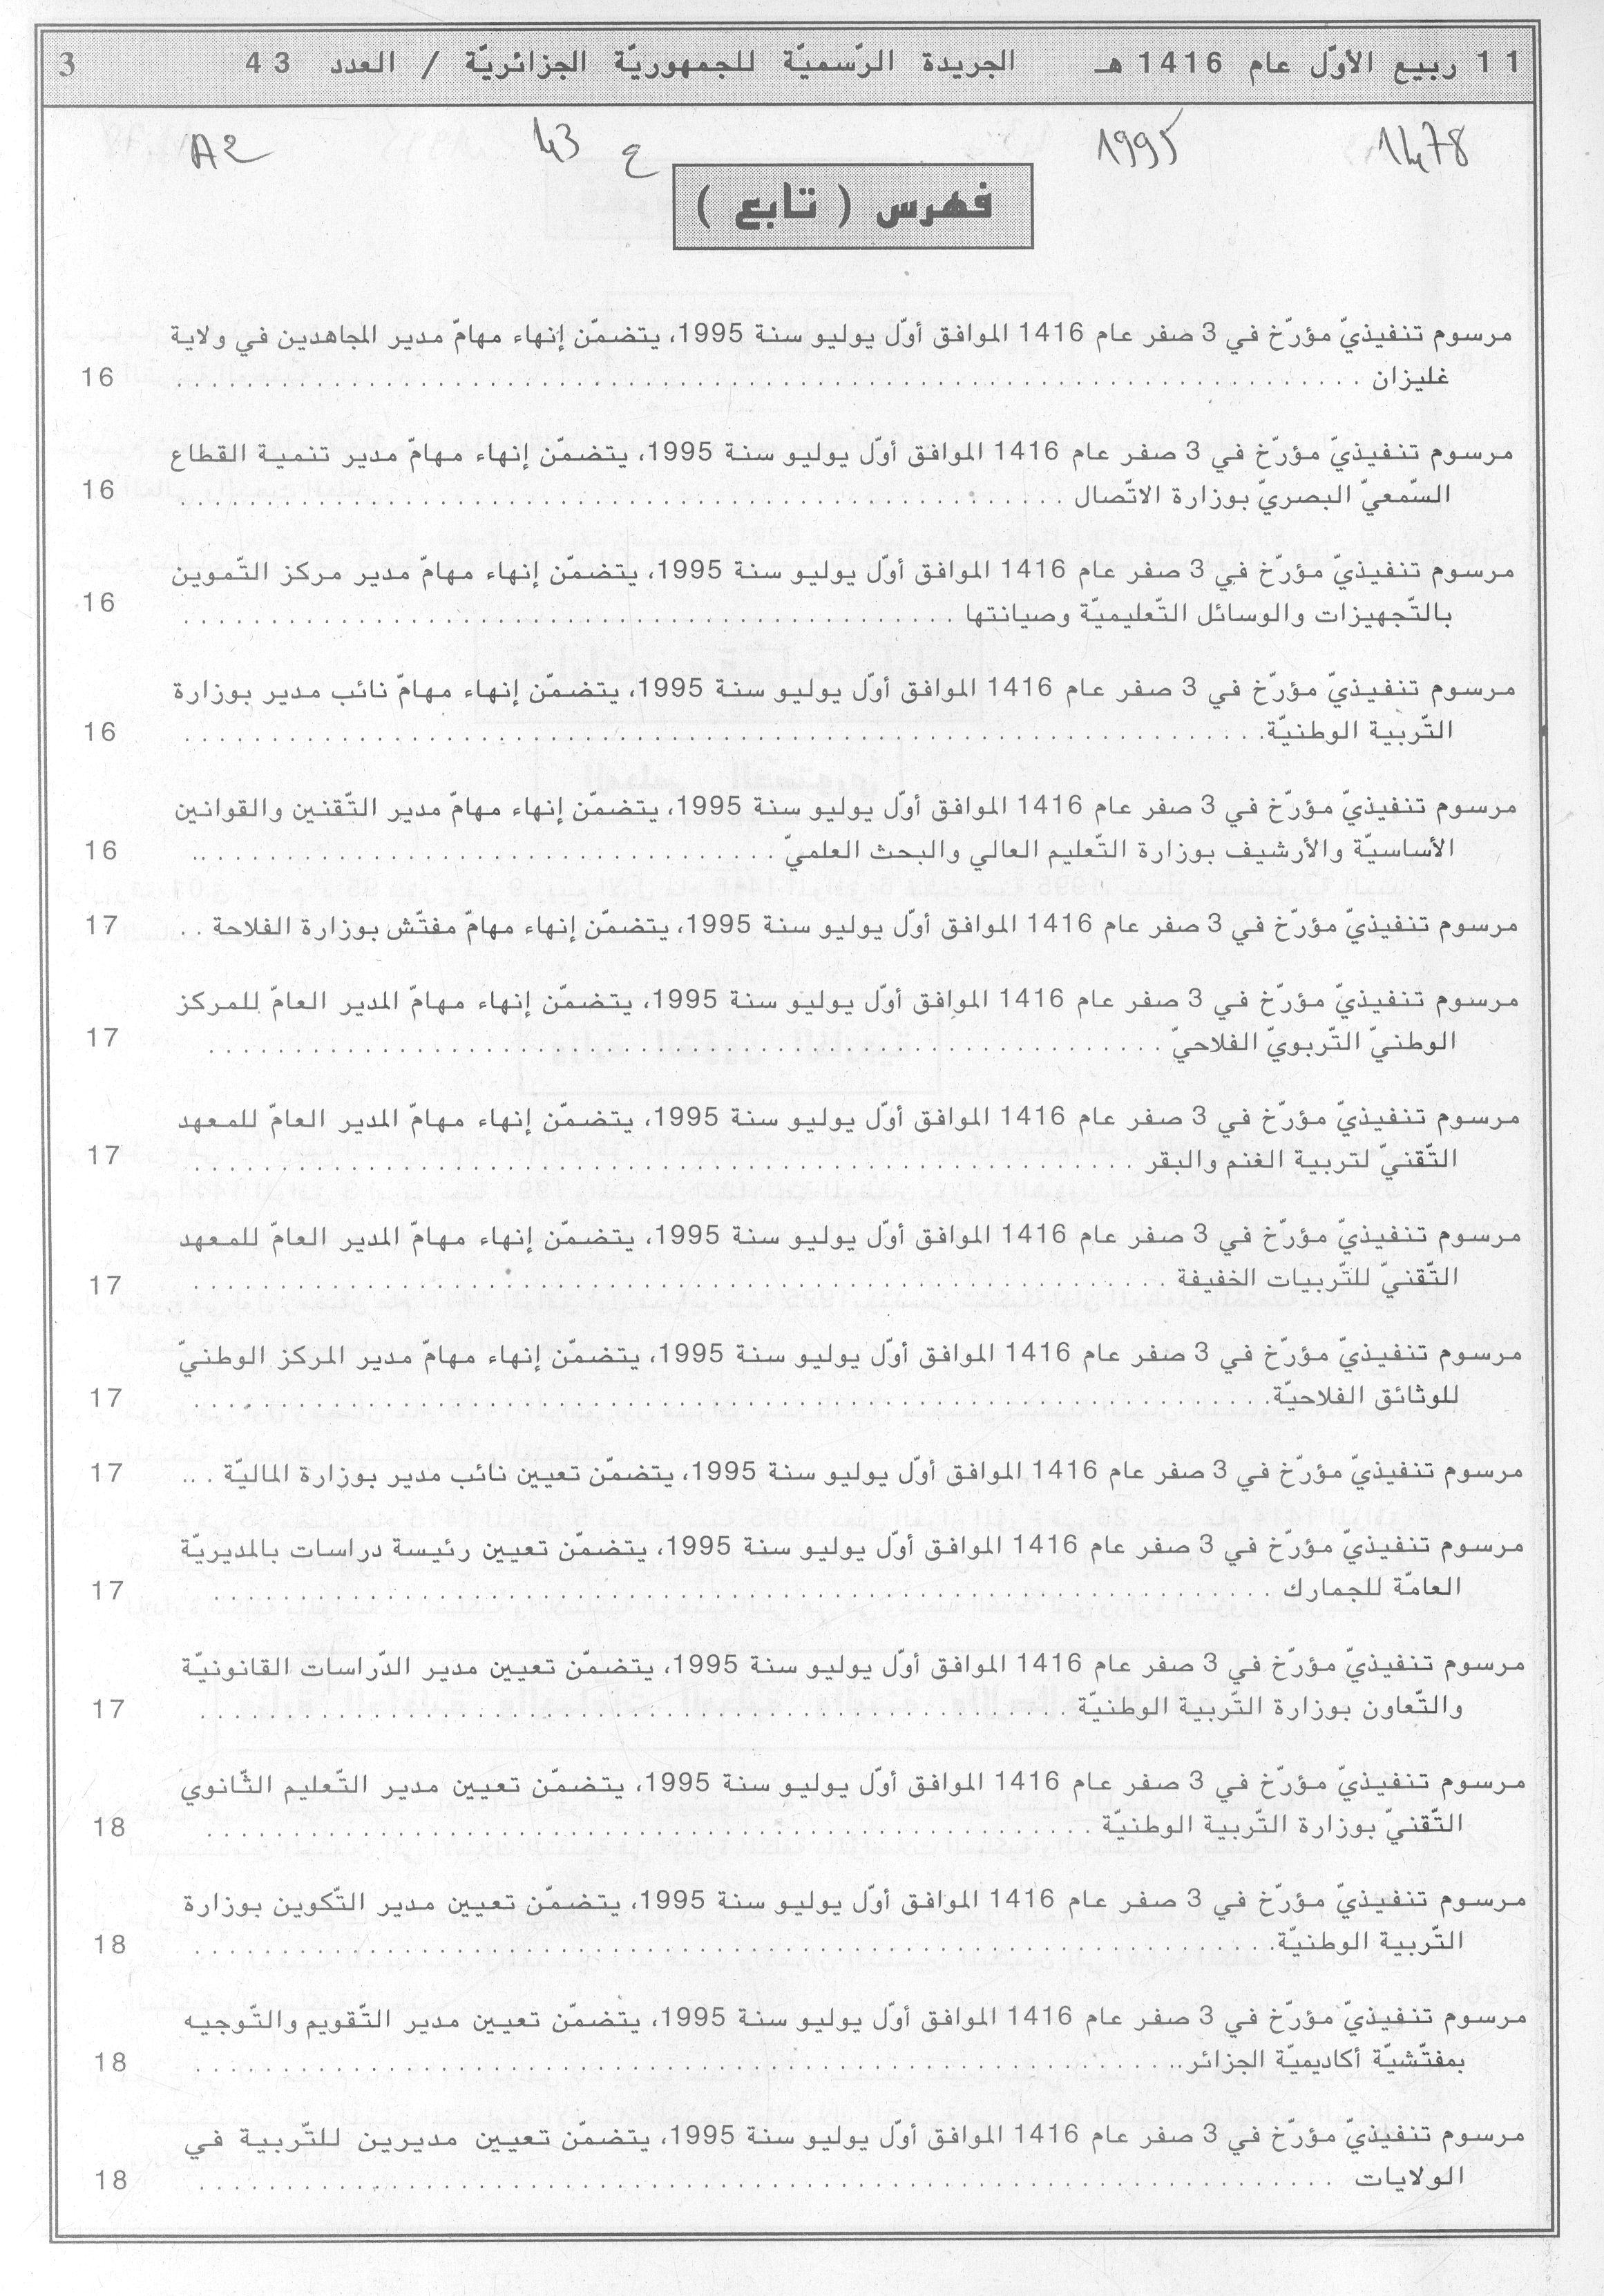 11 ربيع الأوّل عام 1416 هـ الجريدة الرّسميّة للجمهوريّة الجزائريّة / العدد 43 3
1478 1995 ع 43 A2
فهرس ( تابع )
مرسوم تنفيذيّ مؤرّخ في 3 صفر عام 1416 الموافق أوّل يوليو سنة 1995، يتضمّن إنهاء مهامّ مدير المجاهدين في ولاية
غليزان . . . . . . . . . . 16
مرسوم تنفيذيّ مؤرّخ في 3 صفر عام 1416 الموافق أوّل يوليو سنة 1995، يتضمّن إنهاء مهامّ مدير تنمية القطاع
السّمعيّ البصريّ بوزارة الاتّصال . . . . . . . . . . 16
مرسوم تنفيذيّ مؤرّخ في 3 صفر عام 1416 الموافق أوّل يوليو سنة 1995، يتضمّن إنهاء مهامّ مدير مركز التّموين
بالتّجهيزات والوسائل التّعليميّة وصيانتها . . . . . . . . . . 16
مرسوم تنفيذيّ مؤرّخ في 3 صفر عام 1416 الموافق أوّل يوليو سنة 1995، يتضمّن إنهاء مهامّ نائب مدير بوزارة
التّربية الوطنيّة. . . . . . . . . . 16
مرسوم تنفيذيّ مؤرّخ في 3 صفر عام 1416 الموافق أوّل يوليو سنة 1995، يتضمّن إنهاء مهامّ مدير التّقنين والقوانين
الأساسيّة والأرشيف بوزارة التّعليم العالي والبحث العلميّ . . . . . . . . . . 16
مرسوم تنفيذيّ مؤرّخ في 3 صفر عام 1416 الموافق أوّل يوليو سنة 1995، يتضمّن إنهاء مهامّ مفتّش بوزارة الفلاحة . . 17
مرسوم تنفيذيّ مؤرّخ في 3 صفر عام 1416 الموافق أوّل يوليو سنة 1995، يتضمّن إنهاء مهامّ المدير العامّ للمركز
الوطنيّ التّربويّ الفلاحيّ . . . . . . . . . . 17
مرسوم تنفيذيّ مؤرّخ في 3 صفر عام 1416 الموافق أوّل يوليو سنة 1995، يتضمّن إنهاء مهامّ المدير العامّ للمعهد
التّقنيّ لتربية الغنم والبقر . . . . . . . . . . 17
مرسوم تنفيذيّ مؤرّخ في 3 صفر عام 1416 الموافق أوّل يوليو سنة 1995، يتضمّن إنهاء مهامّ المدير العامّ للمعهد
التّقنيّ للتّربيات الخفيفة . . . . . . . . . . 17
مرسوم تنفيذيّ مؤرّخ في 3 صفر عام 1416 الموافق أوّل يوليو سنة 1995، يتضمّن إنهاء مهامّ مدير المركز الوطنيّ
للوثائق الفلاحيّة. . . . . . . . . . 17
مرسوم تنفيذيّ مؤرّخ في 3 صفر عام 1416 الموافق أوّل يوليو سنة 1995، يتضمّن تعيين نائب مدير بوزارة الماليّة . .. 17
مرسوم تنفيذيّ مؤرّخ في 3 صفر عام 1416 الموافق أوّل يوليو سنة 1995، يتضمّن تعيين رئيسة دراسات بالمديريّة
العامّة للجمارك . . . . . . . . . . 17
مرسوم تنفيذيّ مؤرّخ في 3 صفر عام 1416 الموافق أوّل يوليو سنة 1995، يتضمّن تعيين مدير الدّراسات القانونيّة
والتّعاون بوزارة التّربية الوطنيّة . . . . . . . . . . 17
مرسوم تنفيذيّ مؤرّخ في 3 صفر عام 1416 الموافق أوّل يوليو سنة 1995، يتضمّن تعيين مدير التّعليم الثّانوي
التّقنيّ بوزارة التّربية الوطنيّة . . . . . . . . . . 18
مرسوم تنفيذيّ مؤرّخ في 3 صفر عام 1416 الموافق أوّل يوليو سنة 1995، يتضمّن تعيين مدير التّكوين بوزارة
التّربية الوطنيّة. . . . . . . . . . 18
مرسوم تنفيذيّ مؤرّخ في 3 صفر عام 1416 الموافق أوّل يوليو سنة 1995، يتضمّن تعيين مدير التّقويم والتّوجيه
بمفتّشيّة أكاديميّة الجزائر.. . . . . . . . . . 18
مرسوم تنفيذيّ مؤرّخ في 3 صفر عام 1416 الموافق أوّل يوليو سنة 1995، يتضمّن تعيين مديرين للتّربية في
الولايات . . . . . . . . . . 18